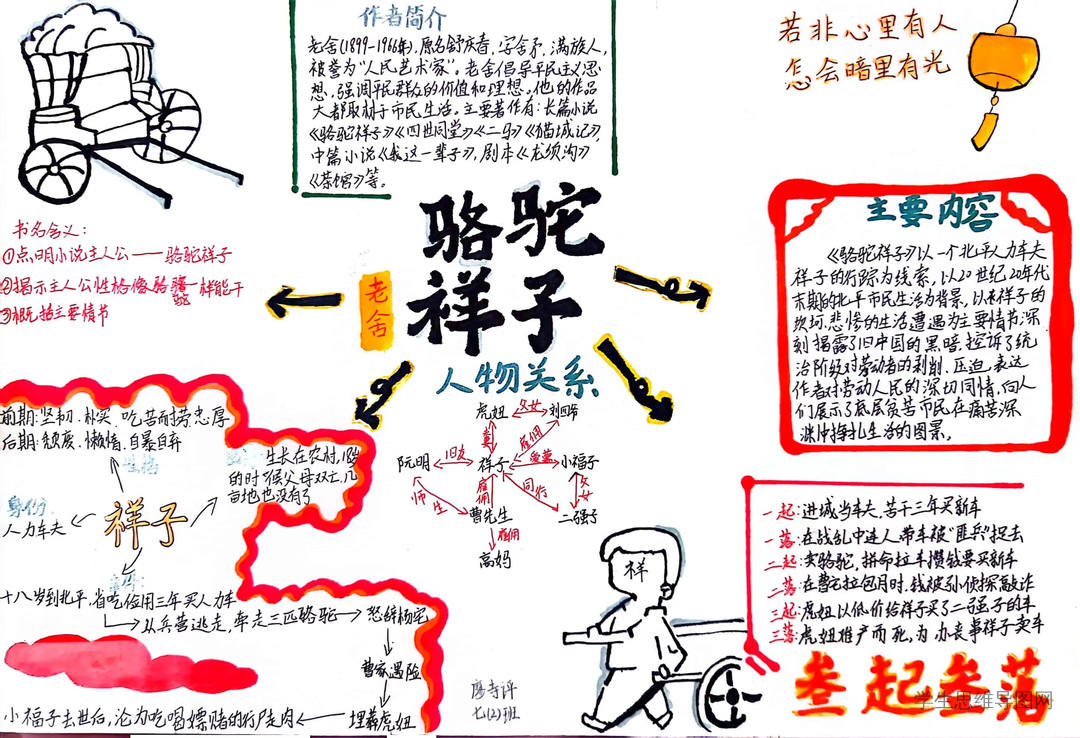 作者简介
老舍(1899-1966年),原名舒庆春,字舍予,满族人,
被誉为“人民艺术家”。老舍倡导平民主义思
想,强调平民群众的价值和理想。他的作品
大都取材于市民生活。主要著作有:长篇小说
《骆驼祥子》《四世同堂》《二马》《猫城记》,
中篇小说《我这一辈子》,剧本《龙须沟》
《茶馆》等。
若非心里有人
怎会暗里有光
骆驼
祥子
老舍
书名含义:
①点明小说主人公——骆驼祥子
②揭示主人公性格像骆驼一样能干
③概括主要情节
主要内容
《骆驼祥子》以一个北平人力车夫
祥子的行踪为线索,以20世纪20年代
末期的北平市民生活为背景,以祥子的
坎坷、悲惨的生活遭遇为主要情节,深
刻揭露了旧中国的黑暗,控诉了统
治阶级对劳动者的剥削、压迫,表达
作者对劳动人民的深切同情,向人
们展示了底层贫苦市民在痛苦深
渊中挣扎生活的图景。
人物关系
虎妞
父女
刘四爷
雇佣
阮明
旧友
祥子
爱慕
小福子
师生
雇佣
同行
父女
曹先生
二强子
雇佣
高妈
前期:坚韧、朴实、吃苦耐劳、忠厚
后期:颓废、懒惰、自暴自弃
性格
生长在农村,18岁
的时候父母双亡,几
亩地也没有了
身份
人力车夫
祥子
十八岁到北平,省吃俭用三年买人力车
从兵营逃走,牵走三匹骆驼
怒辞杨宅
曹家遇险
埋葬虎妞
小福子去世后,沦为吃喝嫖赌的行尸走肉
祥
七(2)班
一起:进城当车夫,苦干三年买新车
一落:在战乱中连人带车被“匪兵”捉去
二起:卖骆驼,拼命拉车攒钱要买新车
二落:在曹宅拉包月时,钱被孙侦探敲诈
三起:虎妞以低价给祥子买了二强子的车
三落:虎妞难产而死,为办丧事祥子卖车
叁起叁落
学生思维导图网